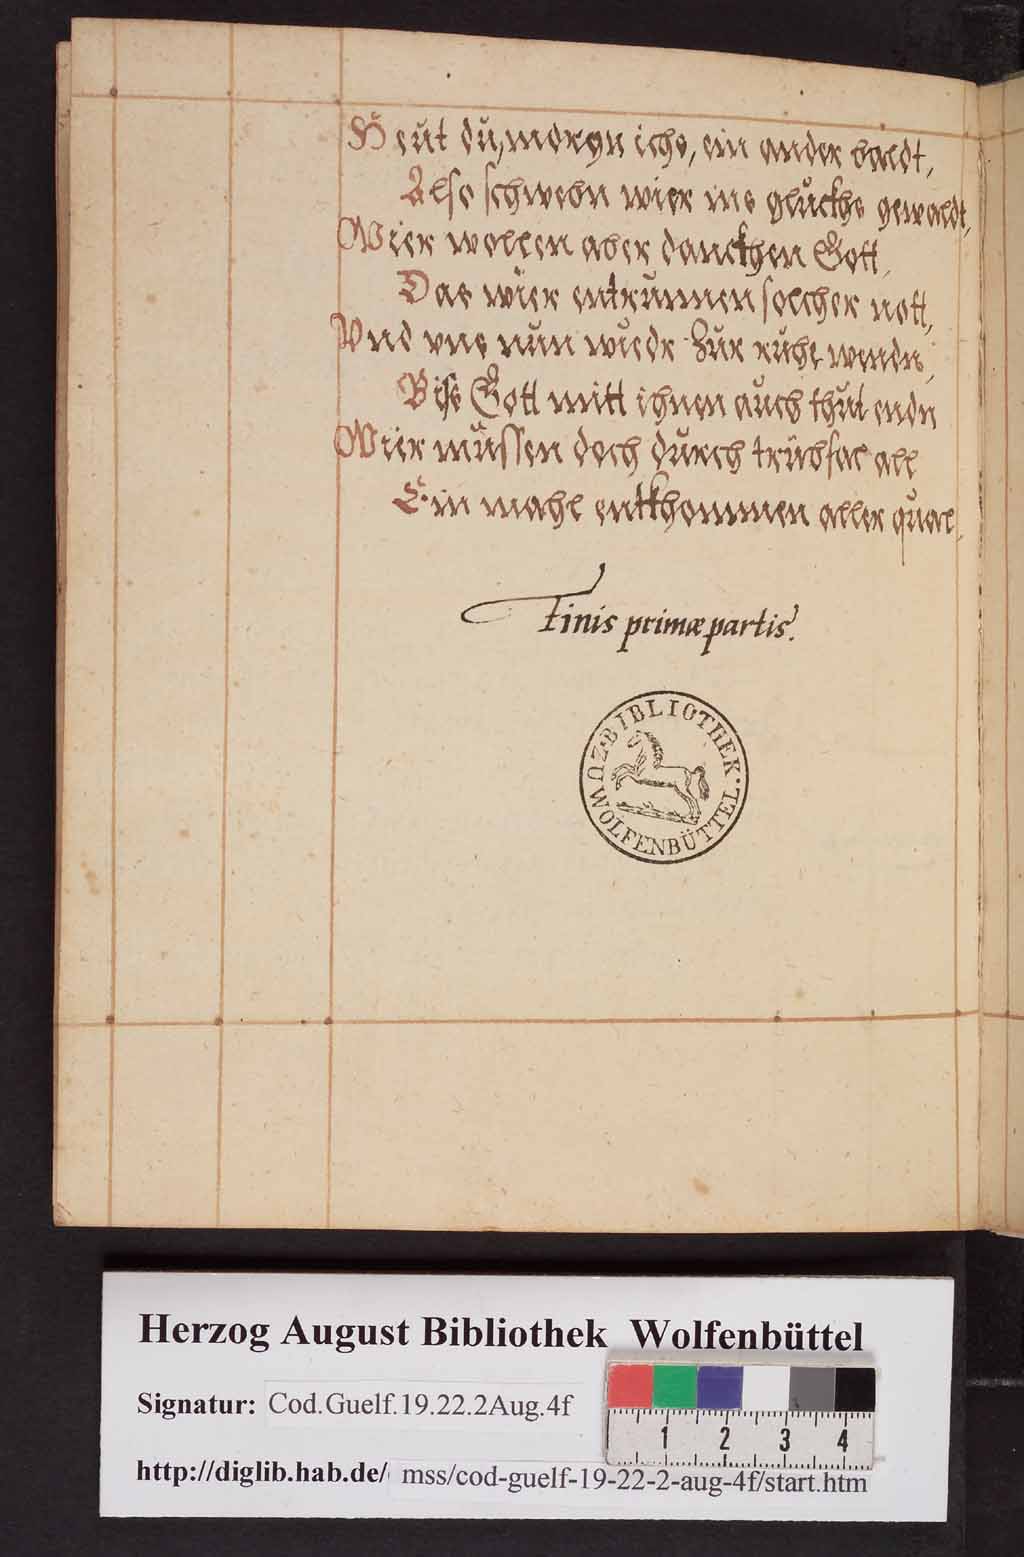 Heut du, morgn ichs, ein ander baldt,
Also schwebn wier ins gluckhs gewaldt,
Wier wollen aber danckhen Gott,
Das wier entrunnen solcher nott,
Vnd vns nun wiedr zur ruhe wendn,
Biss Gott mitt ihnen auch thut endn
Wier müssen doch durch trübsal all
Ein mahl entkhommen aller qual.
Finis primæ partis.
BIBLIOTHEK · WOLFENBÜTTEL · ZU
Herzog August Bibliothek Wolfenbüttel
Signatur: Cod.Guelf.19.22.2Aug.4f
1 2 3 4
http://diglib.hab.de/ mss/cod-guelf-19-22-2-aug-4f/start.htm